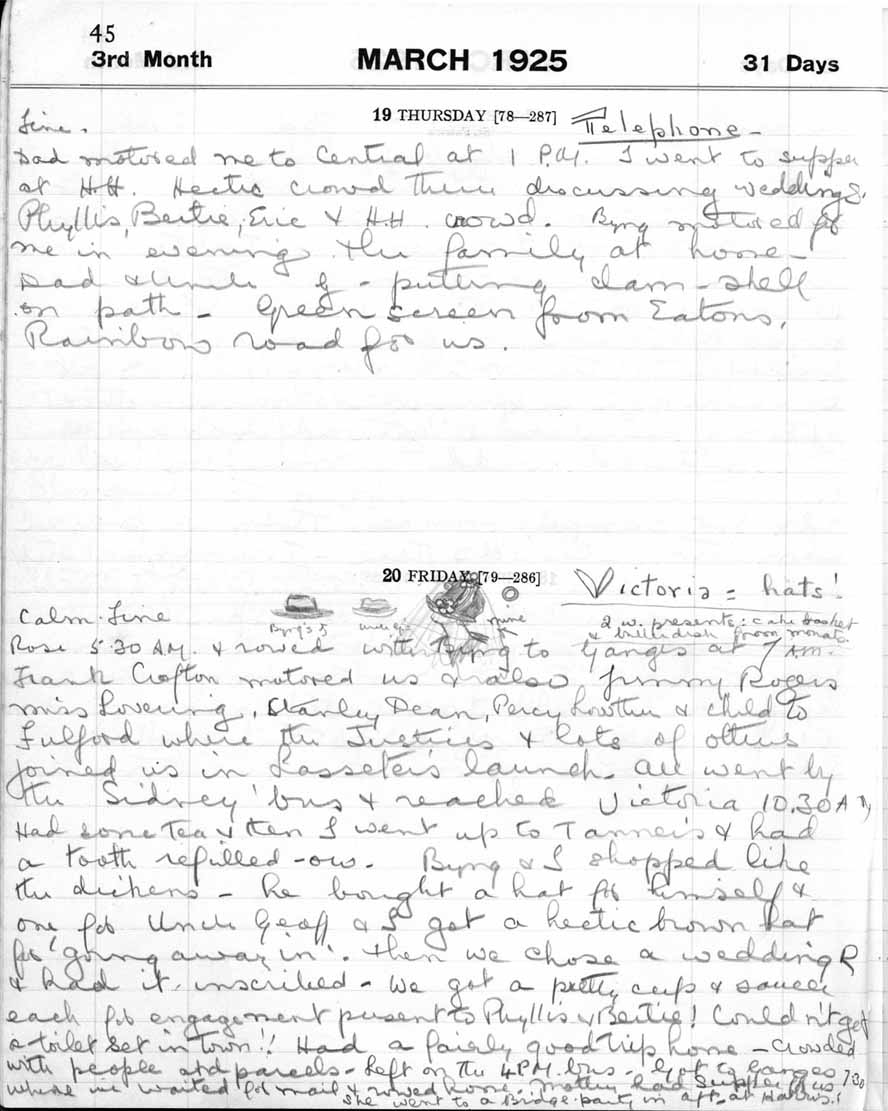 45
3rd Month MARCH 1925 31 Days
19 THURSDAY [78—287] Telephone -
Fine.
Dad motored me to Central at 1 P.M. I went to supper
at H.H. Hectic crowd there discussing weddings.
Phyllis, Bertie, Eric & H.H. crowd. Byng motored for
me in evening. the family at home -
Dad & Uncle G - putting clam-shell
on path - Green screen from Eatons,
Rainbow road for us.
20 FRIDAY [79—286] Victoria = hats!
Calm. Fine
Byng's Uncle G's mine
2 w. presents: cake basket
& butterdish from Mouats.
Rose 5.30 A.M. & rowed with Byng to Ganges at 7 A.M.
Frank Crofton motored us & also Jimmy Rogers
Miss Lovering, Stanley Dean, Percy Lowther & child to
Fulford where the Justices & lots of others
joined us in Lasseter's launch. All went by
the Sidney 'bus & reached Victoria 10.30 A M
Had some Tea & then I went up to Tanner's & had
a tooth refilled - ow. Byng & I shopped like
the dickens - he bought a hat for himself &
one for Uncle Geoff & I got a hectic brown hat
for 'going away in'. then we chose a wedding R
& had it inscribed - We got a pretty cup & saucer
each for engagement present to Phyllis & Bertie! Couldn't get
a toilet set in town!! Had a fairly good trip home - Crowded
with people and parcels - left on the 4 P.M. bus - Got to Ganges 7.30
where we waited for mail & rowed home. Mother had supper for us
She went to a Bridge party in aft. at